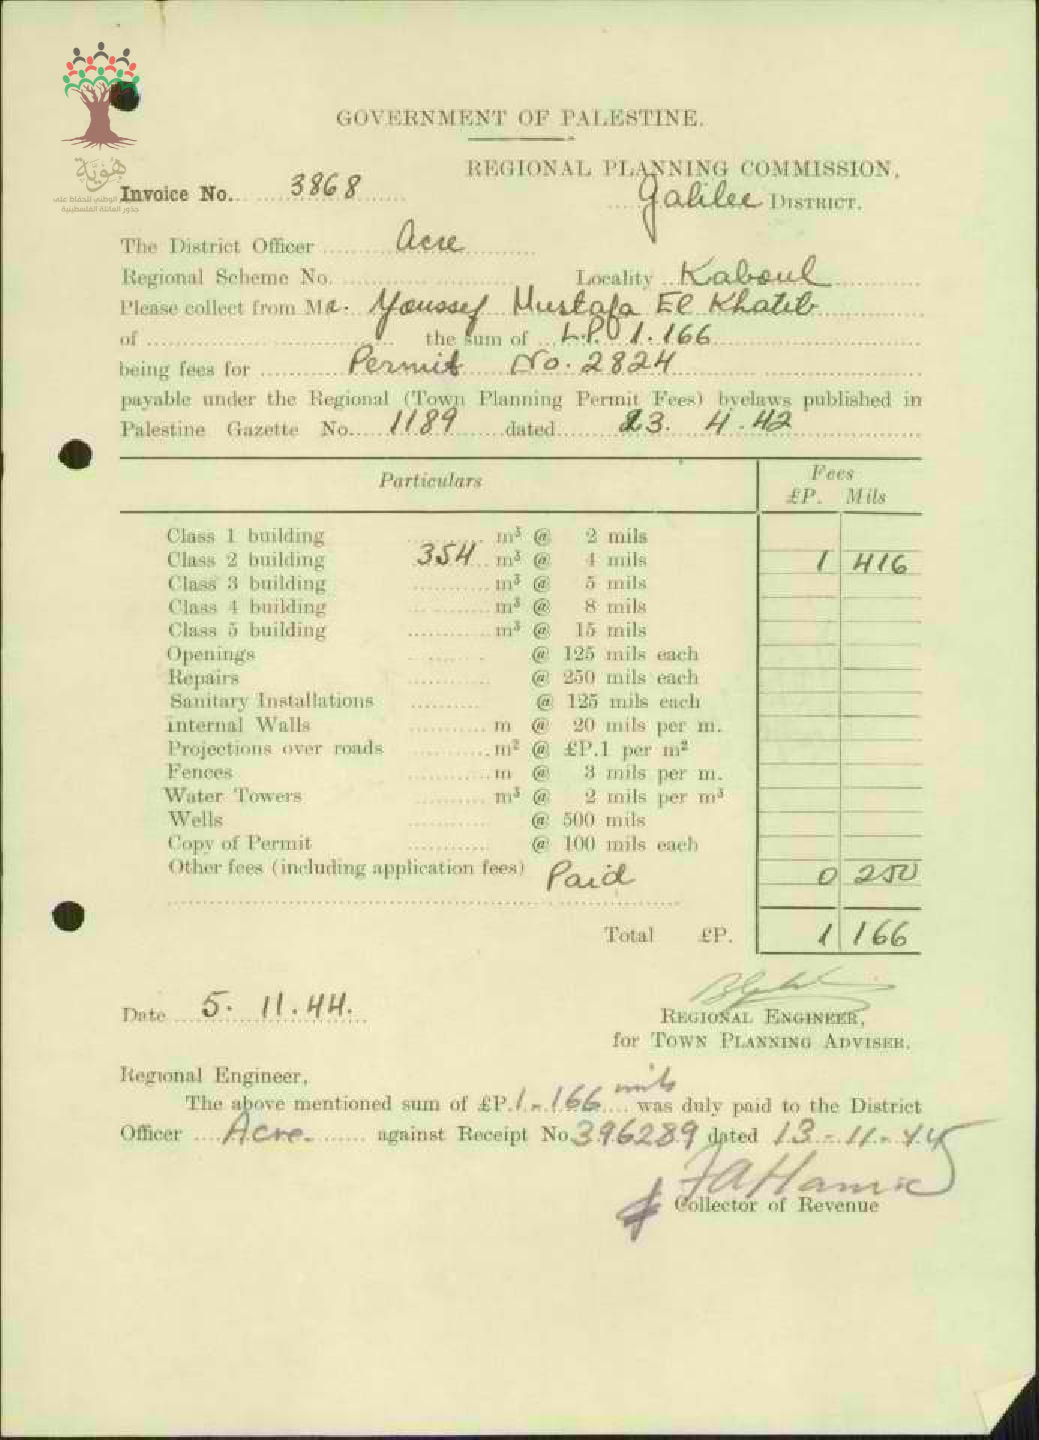 هُويَّة
الوطني للحفاظ على
جذور العائلة الفلسطينية
GOVERNMENT OF PALESTINE.
REGIONAL PLANNING COMMISSION,
Invoice No. 3868
Galilee DISTRICT.
The District Officer Acre
Regional Scheme No. Locality Kaboul
Please collect from Mr. Youssef Mustafa El Khatib
of the sum of L.P. 1.166
being fees for Permit No. 2824
payable under the Regional (Town Planning Permit Fees) byelaws published in
Palestine Gazette No. 1189 dated 23. 4. 42
Particulars Fees
£P. Mils
Class 1 building m³ @ 2 mils
Class 2 building 354 m³ @ 4 mils 1 416
Class 3 building m³ @ 5 mils
Class 4 building m³ @ 8 mils
Class 5 building m³ @ 15 mils
Openings @ 125 mils each
Repairs @ 250 mils each
Sanitary Installations @ 125 mils each
Internal Walls m @ 20 mils per m.
Projections over roads m² @ £P.1 per m²
Fences m @ 3 mils per m.
Water Towers m³ @ 2 mils per m³
Wells @ 500 mils
Copy of Permit @ 100 mils each
Other fees (including application fees) Paid 0 250
Total £P. 1 166
Date 5. 11. 44.
REGIONAL ENGINEER,
for TOWN PLANNING ADVISER.
Regional Engineer,
The above mentioned sum of £P. 1 - 166 mils was duly paid to the District
Officer Acre. against Receipt No. 396289 dated 13 - 11 - 45
Collector of Revenue